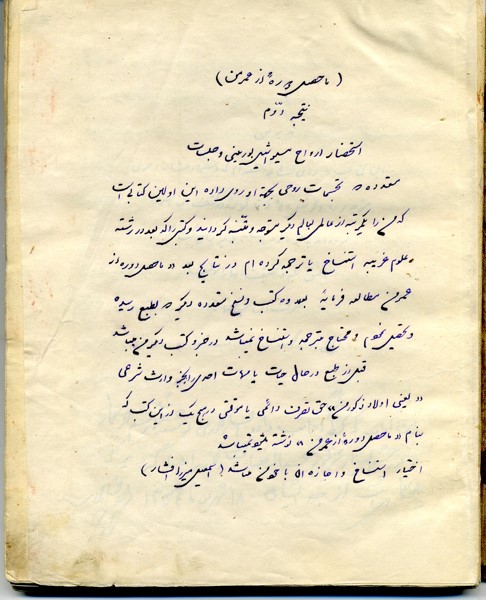 (ماحصل دوره از عمر من)
نتیجه دوّم
استحضار ارواح و جلسات
متعدده که تجسمات روحی بجهة او روی داده این اولین کتابی است
که من را یکمرتبه از عالمی بعالم دیگر متوجه و متنبه گردانید و کتبی را که بعد در رشته
علوم غریبه استنساخ یا ترجمه کرده ام در نتایج بعد «ماحصل دوره از
عمر من مطالعه فرمائید بعد و کتب و نسخ متعدده دیگر که بطبع رسیده
و تحقیق و محتاج بترجمه و استنساخ نمیباشد در جزو کتب دیگر من میباشد
قبل از طبع در حال حیات یا ممات احدی را بجز وارث شرعی
«یعنی اولاد ذکور من» حق تصرف دائمی یا موقتی در هیچ یک از این کتب که
بنام «ماحصل دوره از عمر من» نوشته میشود نمیباشد
اختیار استنساخ و اجازه آن با خود من میباشد (میرزا افشار)